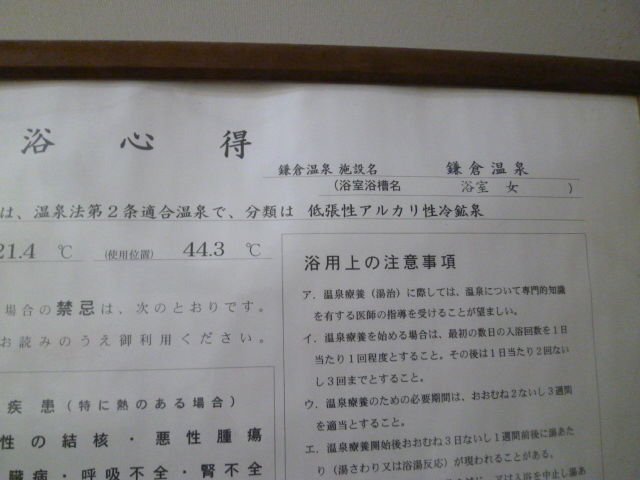 浴心得
鎌倉温泉 施設名 鎌倉温泉
(浴室浴槽名 浴室 女 )
は、温泉法第2条適合温泉で、分類は 低張性アルカリ性冷鉱泉
21.4 ℃ (使用位置) 44.3 ℃
場合の禁忌は、次のとおりです。
お読みのうえ御利用ください。
疾患(特に熱のある場合)
性の結核・悪性腫瘍
臓病・呼吸不全・腎不全
浴用上の注意事項
ア．温泉療養（湯治）に際しては、温泉について専門的知識
を有する医師の指導を受けることが望ましい。
イ．温泉療養を始める場合は、最初の数日の入浴回数を1日
当たり1回程度とすること。その後は1日当たり2回ない
し3回までとすること。
ウ．温泉療養のための必要期間は、おおむね2ないし3週間
を適当とすること。
エ．温泉療養開始後おおむね3日ないし1週間前後に湯あた
り（湯さわり又は浴湯反応）が現われることがある。
又は入浴を中止し湯あ